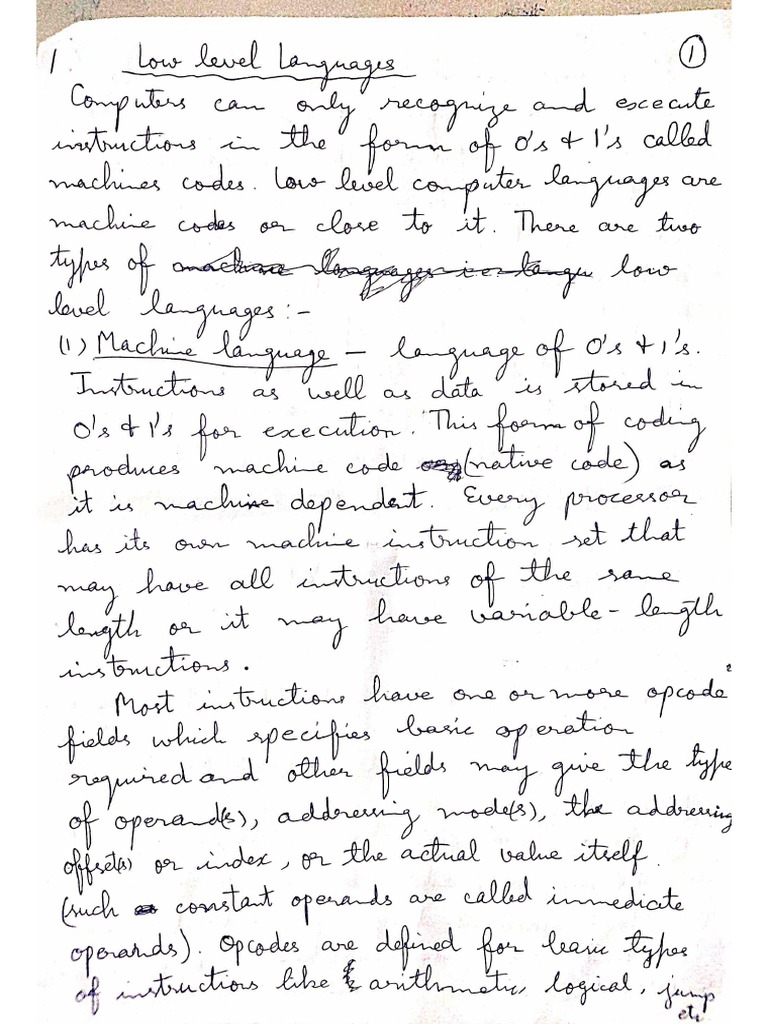 1 Low level Languages ①
Computers can only recognize and excecute
instructions in the form of 0's & 1's called
machines codes. Low level computer languages are
machine codes or close to it. There are two
types of machine languages i.e. langu low
level languages:-
(1) Machine language - language of 0's & 1's.
Instructions as well as data is stored in
0's & 1's for execution. This form of coding
produces machine code (native code) as
it is machine dependent. Every processor
has its own machine instruction set that
may have all instructions of the same
length or it may have variable-length
instructions.
Most instructions have one or more opcode
fields which specifies basic operation
required and other fields may give the type
of operand(s), addressing mode(s), the addressing
offset(s) or index, or the actual value itself
(such constant operands are called immediate
operands). Opcodes are defined for basic types
of instructions like arithmetic, logical, jump
etc